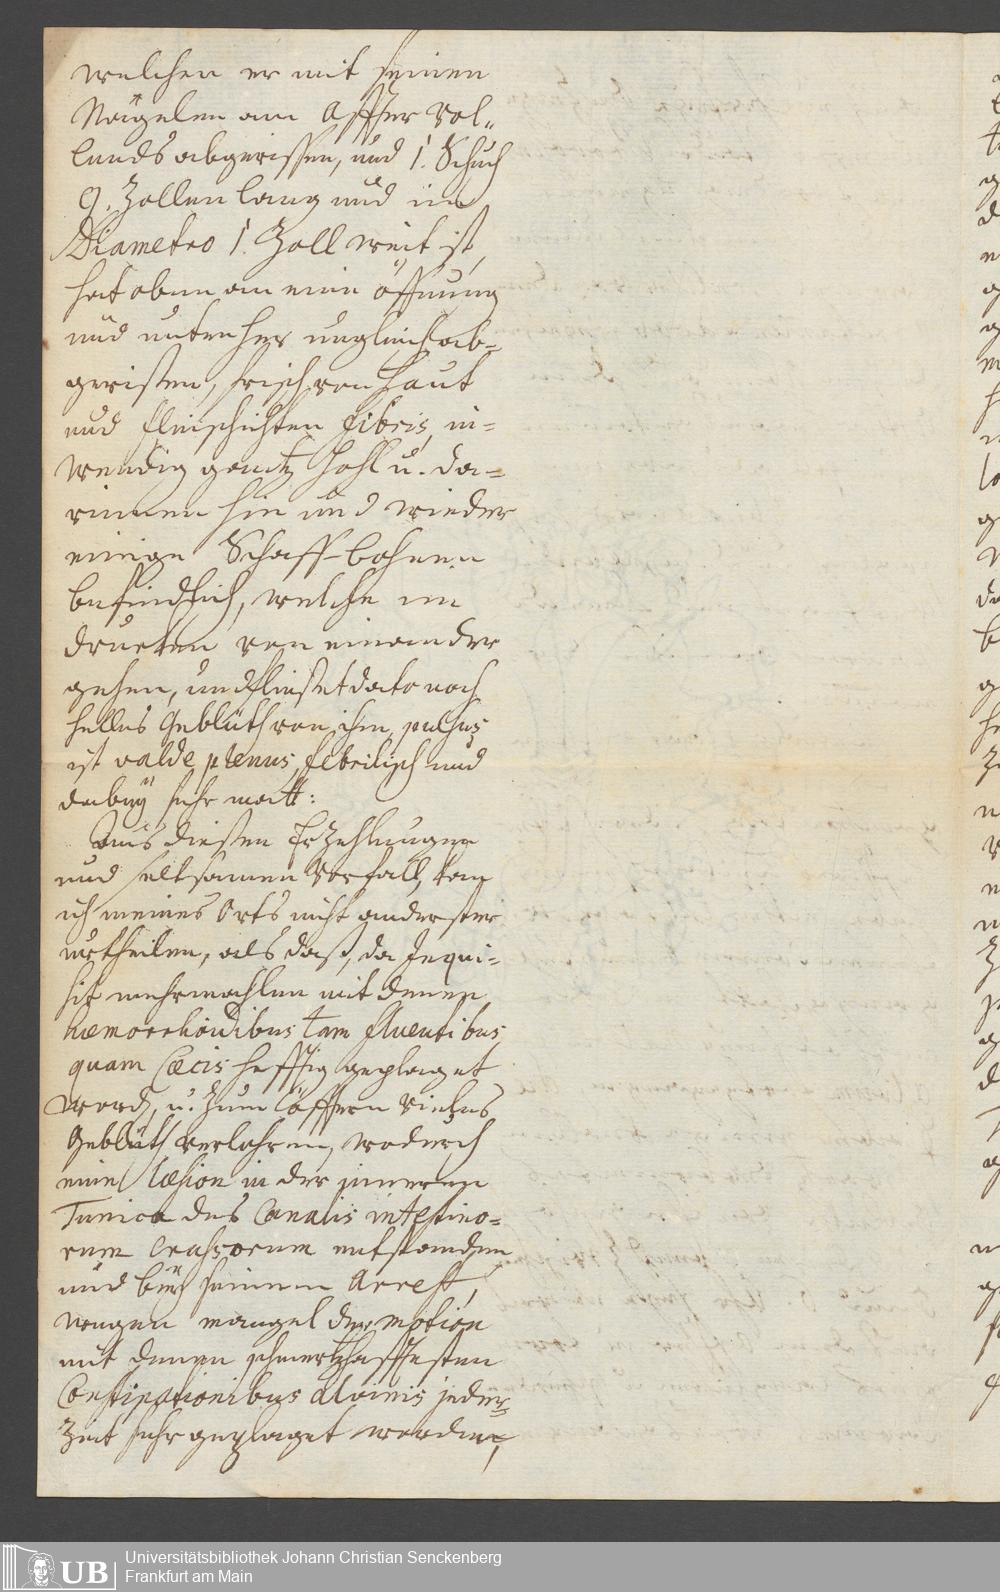 welchen er mit seinen
Nägelen am Affter vol„
lends abgerissen, und 1. Schuch
9. Zollen lang und in
Diametro 1. Zoll weit ist,
hat oben an eine öffnung
und unten her ungleich ab-
gerißen, frisch von Haut
und fleischichten fibris, in-
wendig gantz hohl u. da-
rinnen hin und wieder
einige Schaff-bohnen
befindlich, welche im
drucken von einander
gehen, und fließet dato noch
helles Geblüth von ihm, pulsus
ist valde plenus, febrilisch und
dabeÿ sehr matt:
Aus dießen Erzehlungen
und seltsamen Vorfall, kan
ich meines Orts nicht anderster
urtheilen, als daß, da Inqui-
sit mehrmahlen mit denen
hæmorrhoidibus tam fluentibus
quam Cæcis hefftig geplaget
word, u. zum öffteren vieles
Geblüth verlohren, wodurch
eine læsion in der inneren
Tunica des Canalis intestino-
rum crassorum entstanden
und beÿ seinem Arrest,
wegen mangel der motion
mit denen schmertzhafftesten
Constipationibus alvinis jeder-
zeit sehr geplaget worden,
Universitätsbibliothek Johann Christian Senckenberg
UB Frankfurt am Main